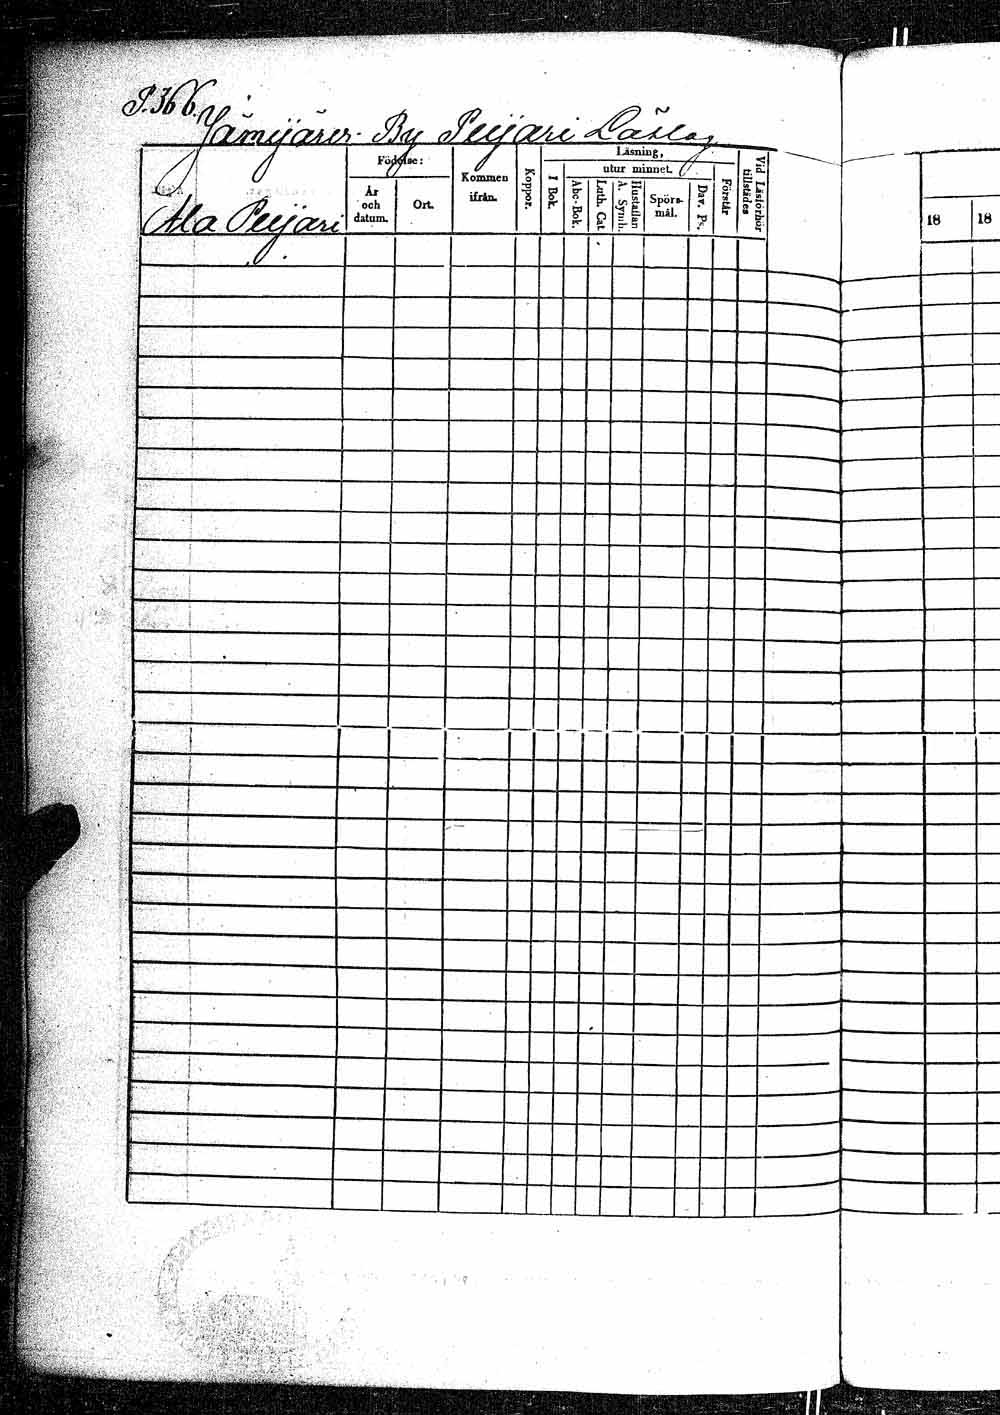 P. 366.
Jämijärvi By Peijari Läslag
Födelse:
Kommen ifrån.
Koppor.
Läsning,
I Bok.
utur minnet.
Förstår
Vid Läsförhör tillstädes
År och datum.
Ort.
Abc-Bok.
Luth. Cat
Hustaflan A. Symb.
Spörs-mål.
Dav. Ps.
18
18
Ala Peijari